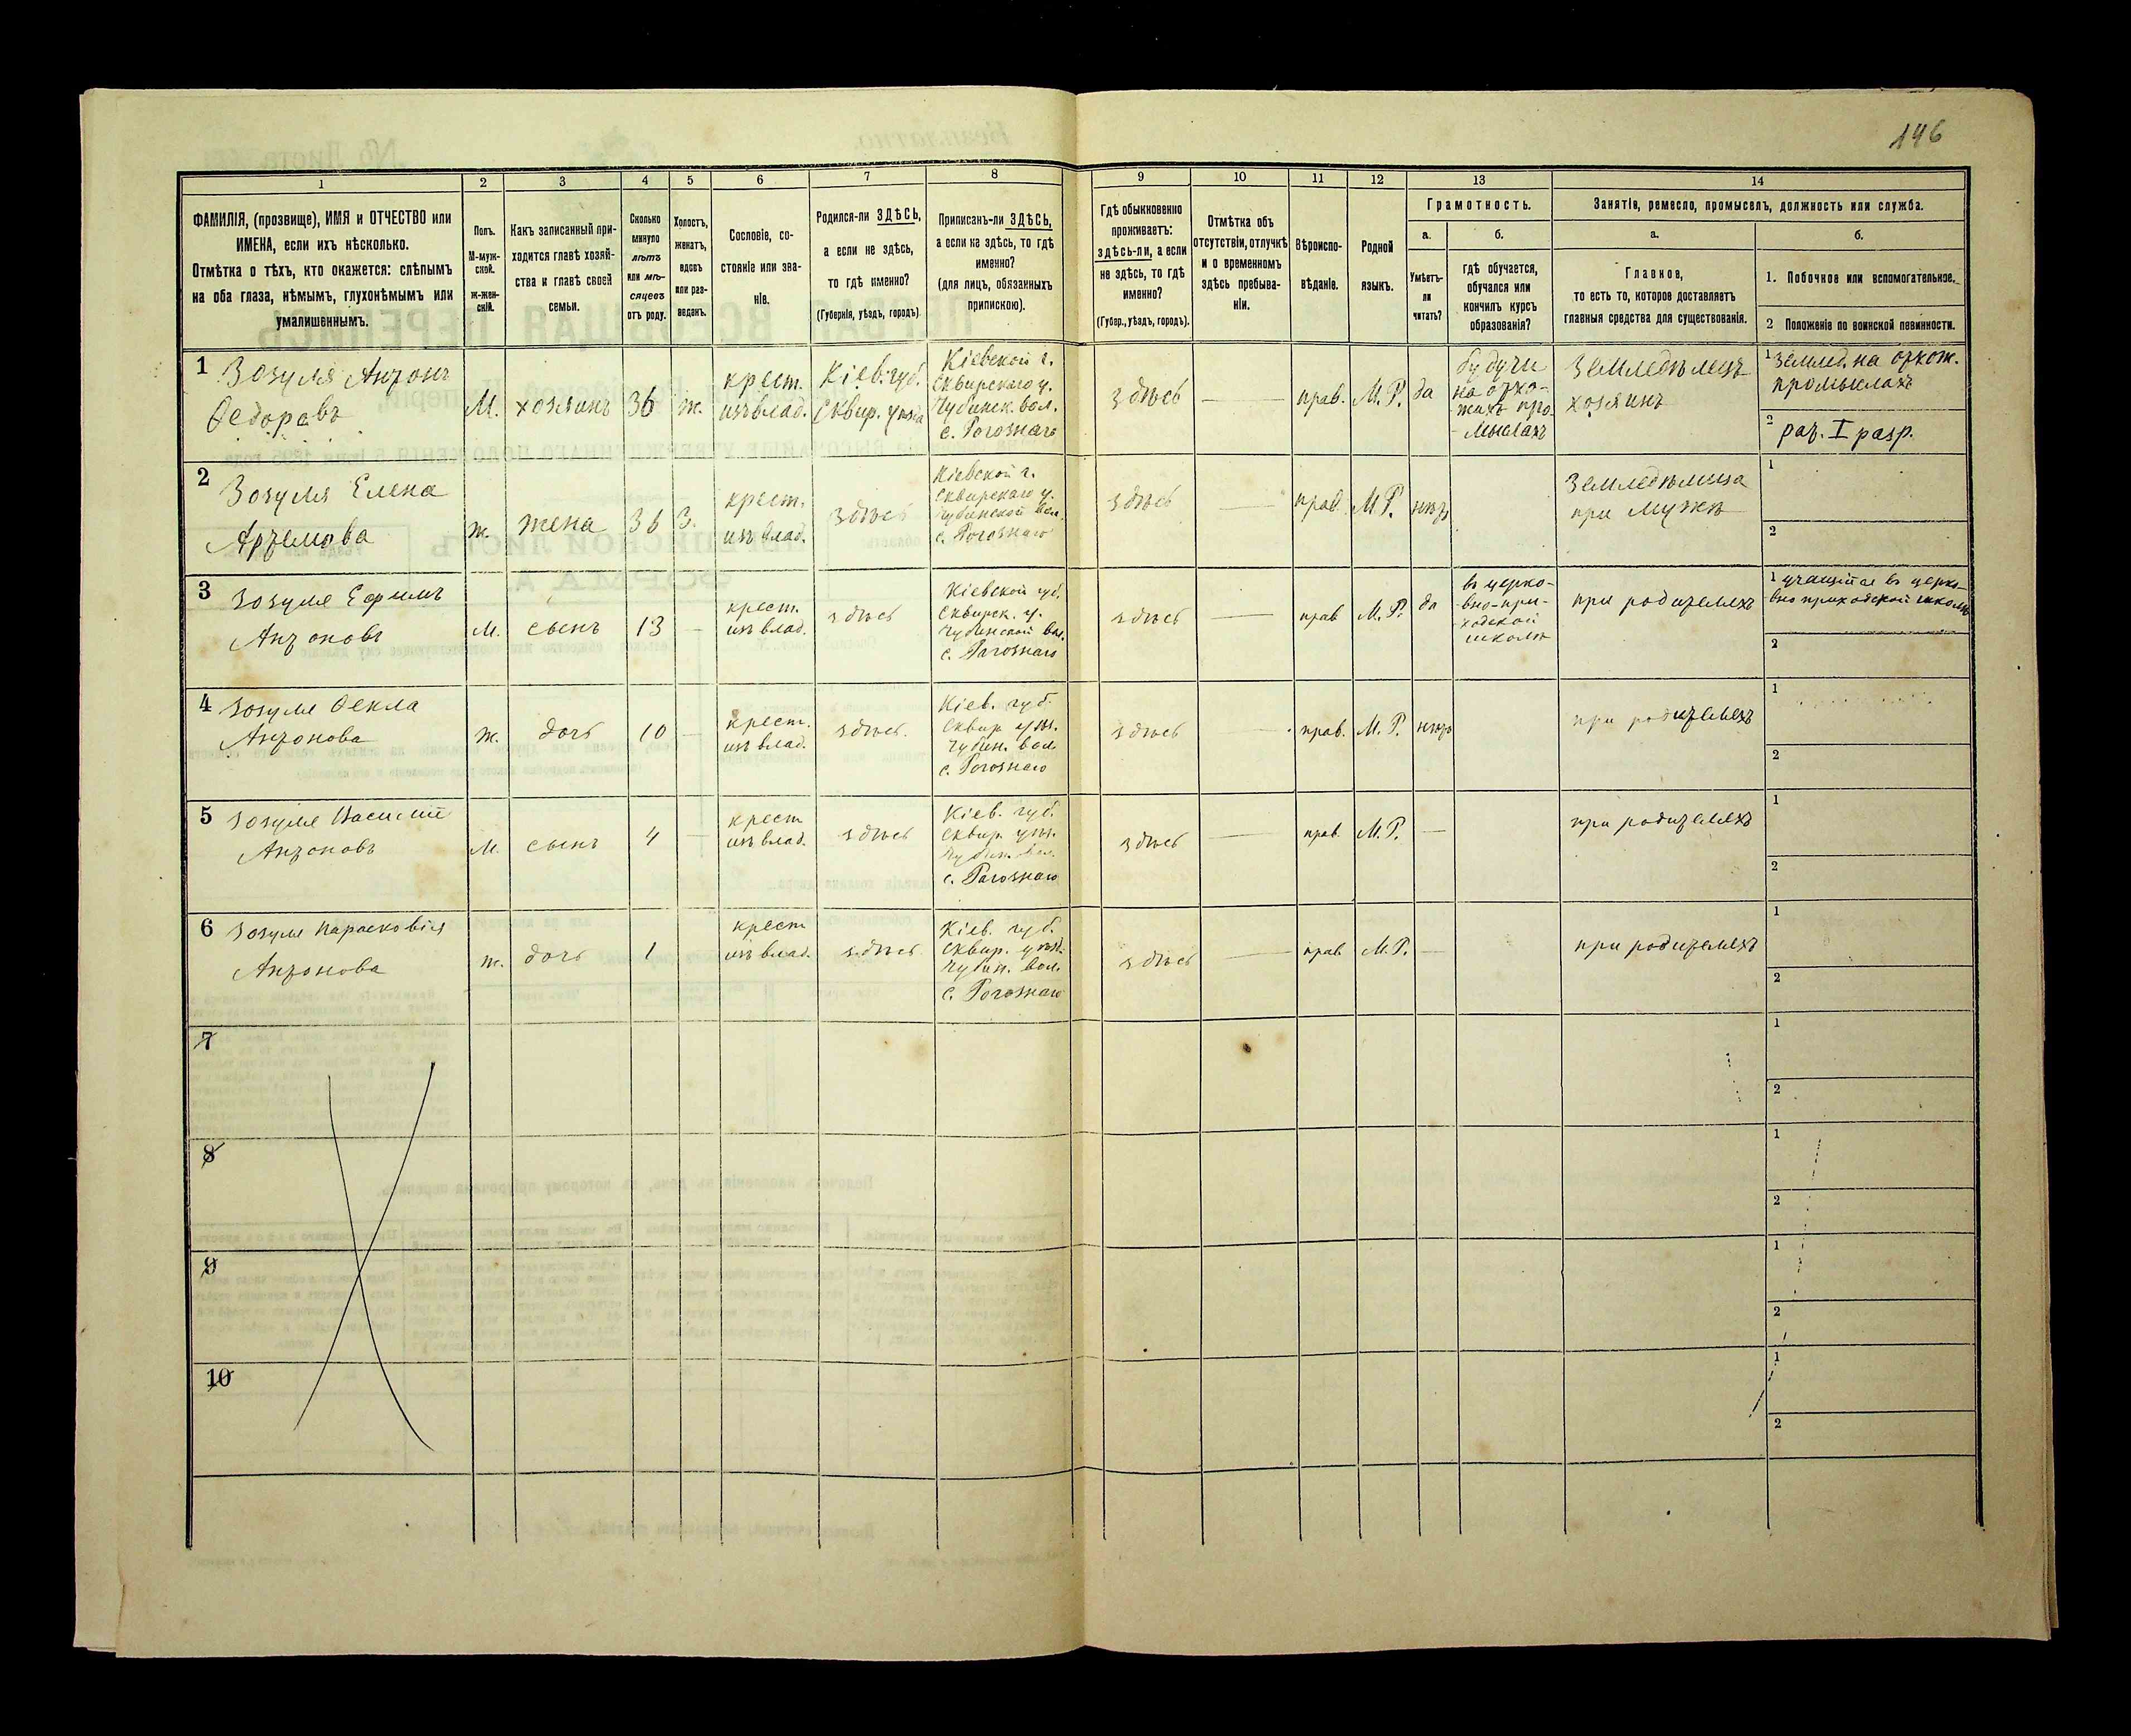 146
1
2
3
4
5
6
7
8
9
10
11
12
13
14
ФАМИЛІЯ, (прозвище), ИМЯ и ОТЧЕСТВО или
ИМЕНА, если ихъ нѣсколько.
Отмѣтка о тѣхъ, кто окажется: слѣпымъ
на оба глаза, нѣмымъ, глухонѣмымъ или
умалишеннымъ.
Полъ.
М-муж-
ской.
ж-жен-
скій.
Какъ записанный при-
ходится главѣ хозяй-
ства и главѣ своей
семьи.
Сколько
минуло
лѣтъ
или мѣ-
сяцевъ
отъ роду.
Холостъ,
женатъ,
вдовъ
или раз-
веденъ.
Сословіе, со-
стояніе или зва-
ніе.
Родился-ли ЗДѢСЬ,
а если не здѣсь,
то гдѣ именно?
(Губернія, уѣздъ, городъ)
Приписанъ-ли ЗДѢСЬ,
а если не здѣсь, то гдѣ
именно?
(для лицъ, обязанныхъ
припискою).
Гдѣ обыкновенно
проживаетъ:
здѣсь-ли, а если
не здѣсь, то гдѣ
именно?
(Губер., уѣздъ, городъ).
Отмѣтка объ
отсутствіи, отлучкѣ
и о временномъ
здѣсь пребыва-
ніи.
Вѣроиспо-
вѣданіе.
Родной
языкъ.
Грамотность.
а.
Умѣетъ-
ли
читать?
б.
гдѣ обучается,
обучался или
кончилъ курсъ
образованія?
Занятіе, ремесло, промыселъ, должность или служба.
а.
Главное,
то есть то, которое доставляетъ
главныя средства для существованія.
б.
1. Побочное или вспомогательное.
2 Положеніе по воинской повинности.
1 Зозуля Антонъ
Ѳедоровъ
М.
хозяинъ
36
ж.
крест.
изъ влад.
Кіев. губ.
Сквир. уѣзда
Кіевской г.
Сквирскаго у.
Чубинск. вол.
с. Рогознаго
здѣсь
прав.
М.Р.
да
будучи
на отхо-
жихъ про-
мыслахъ
Земледѣлецъ
хозяинъ
1 землед. на отхож.
промыслахъ
2 рат. I разр.
2 Зозуля Елена
Артемова
ж.
жена
36
З.
крест.
изъ влад.
Здѣсь
Кіевской г.
Сквирскаго у.
Чубинской вол.
с. Рогознаго
здѣсь
прав.
М.Р.
нѣтъ
Земледѣлица
при мужѣ
1
2
3 Зозуля Ефимъ
Антоновъ
М.
сынъ
13
крест.
изъ влад.
здѣсь
Кіевской губ.
Сквирск. у.
Чубинской вол.
с. Рогознаго
здѣсь
прав
М.Р.
да
въ церко-
вно-при-
ходской
школѣ
при родителяхъ
1 учащійся въ церко-
вно приходской школѣ
2
4 Зозуля Ѳекла
Антонова
ж.
дочь
10
крест.
изъ влад.
здѣсь.
Кіев. губ.
Сквир. уѣз.
Чубин. вол.
с. Рогознаго
здѣсь
прав.
М.Р.
нѣтъ
при родителяхъ
1
2
5 Зозуля Василій
Антоновъ
М.
сынъ
4
крест
изъ влад.
здѣсь
Кіев. губ.
Сквир. уѣз.
Чубин. вол.
с. Рогознаго
здѣсь
прав.
М.Р.
при родителяхъ
1
2
6 Зозуля Парасковія
Антонова
ж.
дочь
1
крест
изъ влад.
здѣсь
Кіев. губ.
Сквир. уѣзд.
Чубин. вол.
с. Рогознаго
здѣсь
прав.
М.Р.
при родителяхъ
1
2
7
1
2
8
1
2
9
1
2
10
1
2